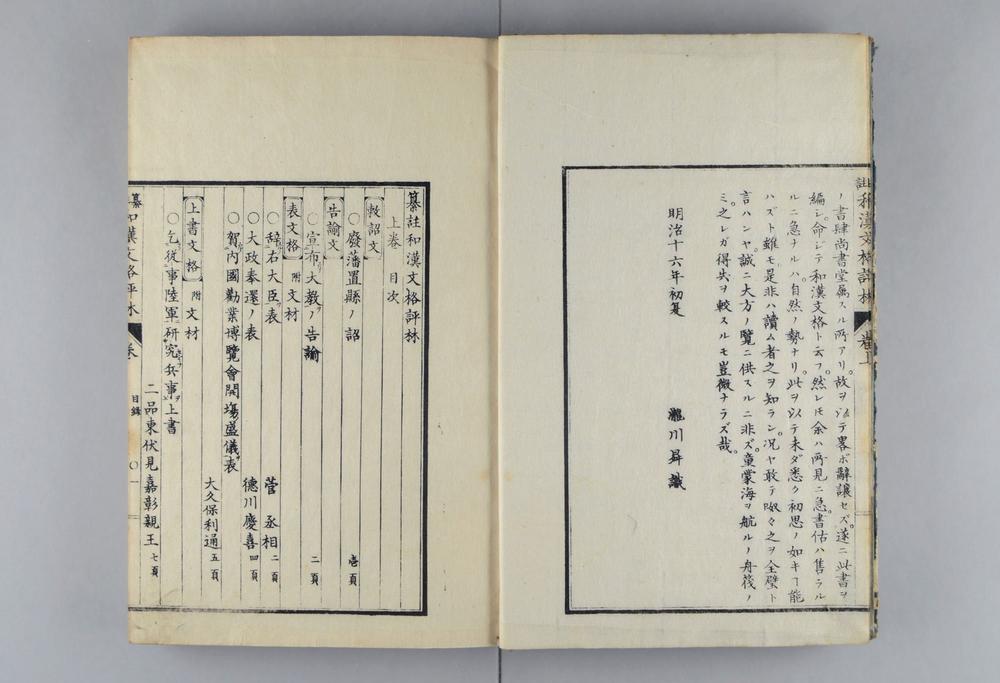 註和漢文格評林 卷上
ノ書肆尚書堂属スル所アリ。故ヲ以テ畧ボ辭讓セズ。遂ニ此書ヲ
編シ。命ジテ和漢文格ト云フ。然レ𪜈余ハ所見ニ急。書估ハ售ラル
ルニ急ナルハ。自然ノ勢ナリ。此ヲ以テ未ダ悉ク初思ノ如キヿ能
ハズト雖モ。是非ハ讀ム者之ヲ知ラン。况ヤ敢テ呶々之ヲ全璧ト
言ハンヤ。誠ニ大方ノ覽ニ供スルニ非ズ。童蒙海ヲ航ルノ舟筏ノ
ミ。之レガ得失ヲ較スルモ豈微ナラズ哉。
明治十六年初夏 瀧川昇識
纂註和漢文格評林
上卷 目次
敕詔文
○廢藩置縣ノ詔 壱頁
告諭文
○宣布大教ノ告諭 二頁
表文格 附文材
○辞右大臣表 菅丞相 二頁
○大政奉還ノ表 德川慶喜 四頁
○賀内國勸業博覽會開塲盛儀表
大久保利通 五頁
上書文格 附文材
○乞從事陸軍研究兵事上書
二品東伏見嘉彰親王 七頁
纂 和漢文格評林 卷 目錄 ○一